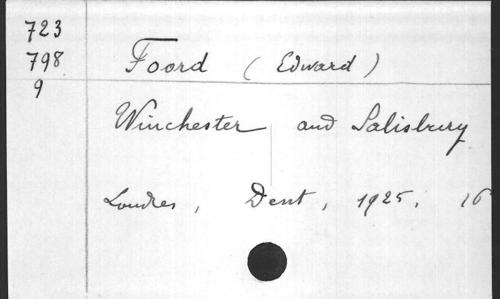 723
798
9
Foord (Edward)
Winchester and Salisbury
Londres, Dent, 1925, 16